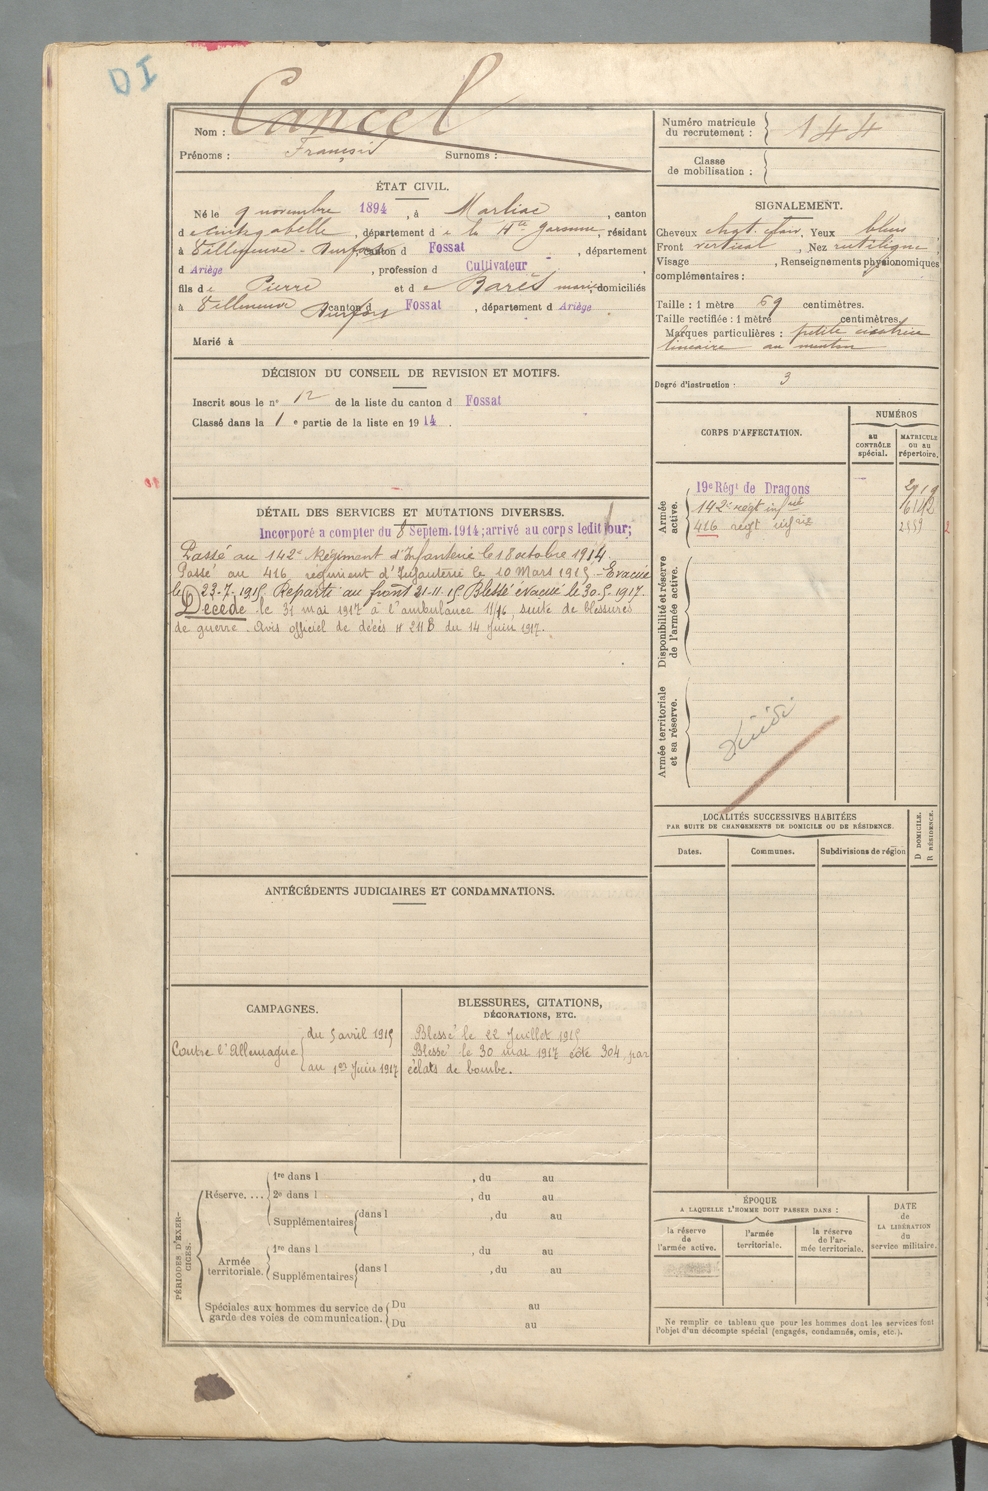 DI
Nom : Cancel
Prénoms : François Surnoms :
Numéro matricule du recrutement : 144
Classe de mobilisation :
ÉTAT CIVIL.
Né le 9 novembre 1894, à Marliac, canton
d e Cintegabelle, département d e la Hte Garonne, résidant
à Villeneuve - Durfort canton d Fossat, département
d Ariège, profession d Cultivateur,
fils d e Pierre et d e Barès mariés domiciliés
à Villeneuve Durfort canton d Fossat, département d Ariège
Marié à
SIGNALEMENT.
Cheveux chat. clair, Yeux bleus
Front vertical, Nez rectiligne
Visage , Renseignements physionomiques
complémentaires :
Taille : 1 mètre 69 centimètres.
Taille rectifiée : 1 mètre centimètres.
Marques particulières : petite cicatrice
linéaire au menton
Degré d'instruction : 3
DÉCISION DU CONSEIL DE REVISION ET MOTIFS.
Inscrit sous le n° 12 de la liste du canton d Fossat
Classé dans la 1 e partie de la liste en 19 14 .
CORPS D'AFFECTATION.
NUMÉROS
AU CONTRÔLE spécial.
MATRICULE OU AU répertoire.
Armée active.
19e Régt de Dragons
142e regt infrie 6142
416 regt infrie 2559
Disponibilité et réserve de l'armée active.
Armée territoriale et sa réserve.
DÉTAIL DES SERVICES ET MUTATIONS DIVERSES.
Incorporé à compter du 8 Septem. 1914; arrivé au corps ledit jour;
Passé au 142e Régiment d'Infanterie le 18 octobre 1914.
Passé au 416 régiment d'Infanterie le 10 Mars 1915 - Evacué
le 23-7-1915 Reparti au front 21-11-15 Blessé évacué le 30-5-1917.
Décédé le 31 mai 1917 à l'ambulance 11/16, suite de blessures
de guerre. Avis officiel de décès n 211B du 14 Juin 1917.
LOCALITÉS SUCCESSIVES HABITÉES
PAR SUITE DE CHANGEMENTS DE DOMICILE OU DE RÉSIDENCE.
Dates.
Communes.
Subdivisions de région
D DOMICILE.
R RÉSIDENCE.
ANTÉCÉDENTS JUDICIAIRES ET CONDAMNATIONS.
CAMPAGNES.
Contre l'Allemagne
du 5 avril 1915
au 1er Juin 1917
BLESSURES, CITATIONS,
DÉCORATIONS, ETC.
Blessé le 22 Juillet 1915
Blessé le 30 mai 1917 côte 304 par
éclats de bombe.
PÉRIODES D'EXERCICES.
Réserve. ...
1re dans l , du au
2e dans l , du au
Supplémentaires dans l , du au
Armée territoriale.
1re dans l , du au
Supplémentaires dans l , du au
Spéciales aux hommes du service de garde des voies de communication.
Du au
Du au
ÉPOQUE
A LAQUELLE L'HOMME DOIT PASSER DANS :
la réserve de l'armée active.
l'armée territoriale.
la réserve de l'armée territoriale.
DATE de LA LIBÉRATION du service militaire.
Ne remplir ce tableau que pour les hommes dont les services font
l'objet d'un décompte spécial (engagés, condamnés, omis, etc.).